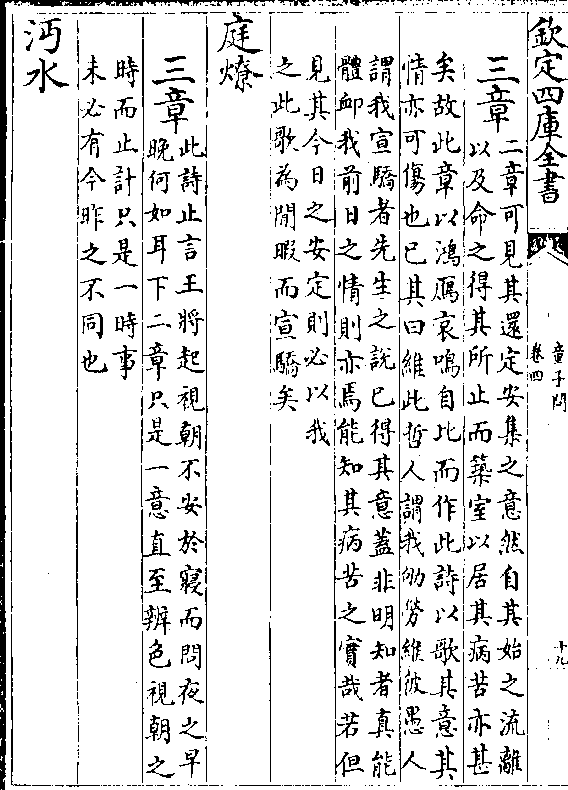 欽定四庫全書
童子問
卷四
十九
三章
二章可見其還定安集之意然自其始之流離
以及命之得其所止而築室以居其病苦亦甚
矣故此章以鴻鴈哀鳴自比而作此詩以歌其意其
情亦可傷也已其曰維此哲人謂我劬勞維彼愚人
謂我宣驕者先生之說已得其意蓋非明知者真能
體卹我前日之情則亦焉能知其病苦之實哉若但
見其今日之安定則必以我
之此歌為閒暇而宣驕矣
庭燎
三章
此詩止言王將起視朝不安於寢而問夜之早
晚何如耳下二章只是一意直至辨色視朝之
時而止計只是一時事
未必有今昨之不同也
沔水